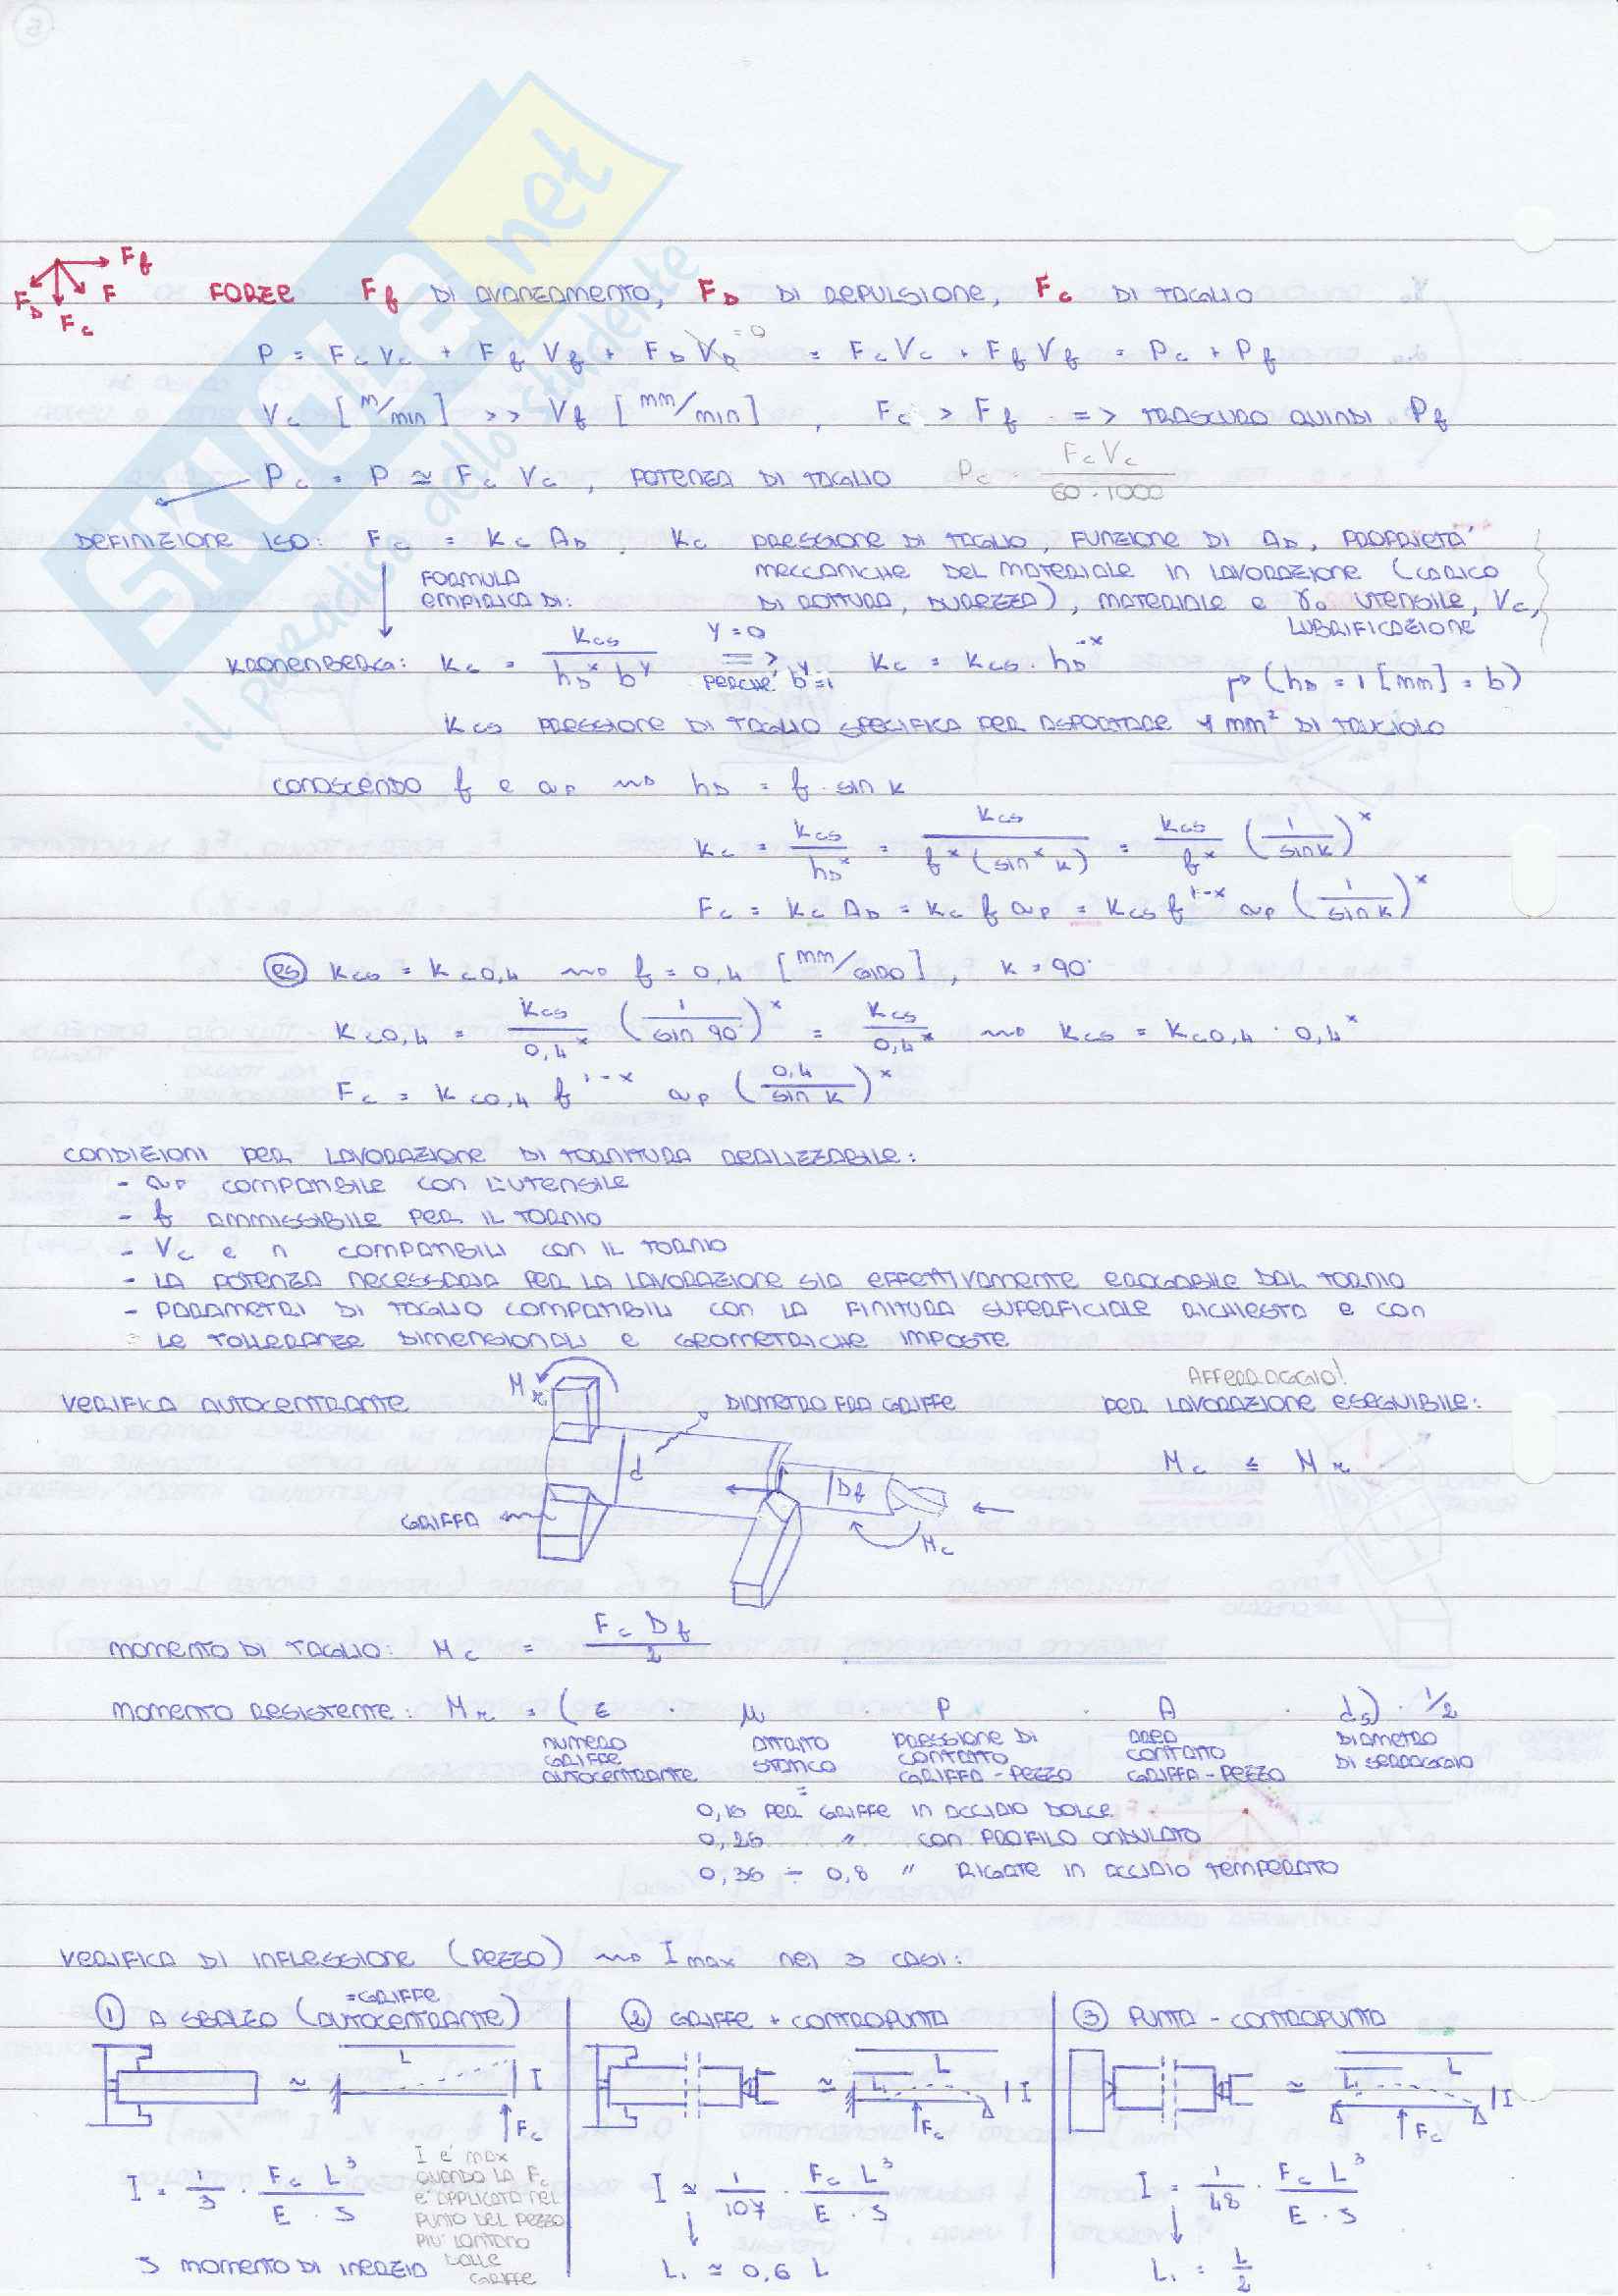 5
SKUOLA.net
il paradiso dello studente
F_f
F_D F_c F
FORZE F_f DI AVANZAMENTO, F_D DI REPULSIONE, F_c DI TAGLIO
P = F_c V_c + F_f V_f + F_D V_D = F_c V_c + F_f V_f = P_c + P_f
= 0
V_c [m/min] >> V_f [mm/min] , F_c > F_f => TRASCURO QUINDI P_f
P_c = P ≃ F_c V_c , POTENZA DI TAGLIO P_c = F_c V_c / 60 · 1000
DEFINIZIONE ISO: F_c = K_c A_D , K_c PRESSIONE DI TAGLIO, FUNZIONE DI A_D, PROPRIETA'
MECCANICHE DEL MATERIALE IN LAVORAZIONE (CARICO
DI ROTTURA, DUREZZA), MATERIALE e γ_0 UTENSILE, V_c,
LUBRIFICAZIONE
FORMULA
EMPIRICA DI:
KRONENBERG: K_c = K_cs / h_D^x b^y y=0 => PERCHE' b^y=1 K_c = K_cs · h_D^-x
(h_D = 1 [mm] = b)
K_cs PRESSIONE DI TAGLIO SPECIFICA PER ASPORTARE 1 mm² DI TRUCIOLO
CONOSCENDO f e a_p ⇝ h_D = f · sin k
K_c = K_cs / h_D^x = K_cs / f^x (sin^x k) = K_cs / f^x (1 / sin k)^x
F_c = K_c A_D = K_c f a_p = K_cs f^1-x a_p (1 / sin k)^x
es K_cs = K_c0,4 ⇝ f = 0,4 [mm/GIRO], k = 90°
K_c0,4 = K_cs / 0,4^x (1 / sin 90°)^x = K_cs / 0,4^x ⇝ K_cs = K_c0,4 · 0,4^x
F_c = K_c0,4 f^1-x a_p (0,4 / sin k)^x
CONDIZIONI PER LAVORAZIONE DI TORNITURA REALIZZABILE:
- a_p COMPATIBILE CON L'UTENSILE
- f AMMISSIBILE PER IL TORNIO
- V_c e n COMPATIBILI CON IL TORNIO
- LA POTENZA NECESSARIA PER LA LAVORAZIONE SIA EFFETTIVAMENTE EROGABILE DAL TORNIO
- PARAMETRI DI TAGLIO COMPATIBILI CON LA FINITURA SUPERFICIALE RICHIESTA e CON
LE TOLLERANZE DIMENSIONALI e GEOMETRICHE IMPOSTE
VERIFICA AUTOCENTRANTE
M_r
DIAMETRO FRA GRIFFE
AFFERRAGGIO!
PER LAVORAZIONE ESEGUIBILE:
M_c ≤ M_r
d
D_f
GRIFFA
M_c
MOMENTO DI TAGLIO: M_c = F_c D_f / 2
MOMENTO RESISTENTE: M_r = (ε · μ · P · A · d_s) · 1/2
NUMERO GRIFFE AUTOCENTRANTE
ATTRITO STATICO
PRESSIONE DI CONTATTO GRIFFA-PEZZO
AREA CONTATTO GRIFFA-PEZZO
DIAMETRO DI SERRAGGIO
=
0,18 PER GRIFFE IN ACCIAIO DOLCE
0,25 " CON PROFILO ONDULATO
0,36 ÷ 0,8 " RIGATE IN ACCIAIO TEMPERATO
VERIFICA DI INFLESSIONE (PEZZO) ⇝ I max NEI 3 CASI:
=GRIFFE
① A SBALZO (AUTOCENTRANTE)
L I F_c
I = 1/3 · F_c L³ / E · J
I E' MAX
QUANDO LA F_c
E' APPLICATA NEL
PUNTO DEL PEZZO
PIU' LONTANO
DALLE
GRIFFE
J MOMENTO DI INERZIA
② GRIFFE + CONTROPUNTA
L L_1 I F_c
I ≃ 1/107 · F_c L³ / E · J
L_1 ≃ 0,6 L
③ PUNTA - CONTROPUNTA
L L_1 I F_c
I = 1/48 · F_c L³ / E · J
L_1 = L/2